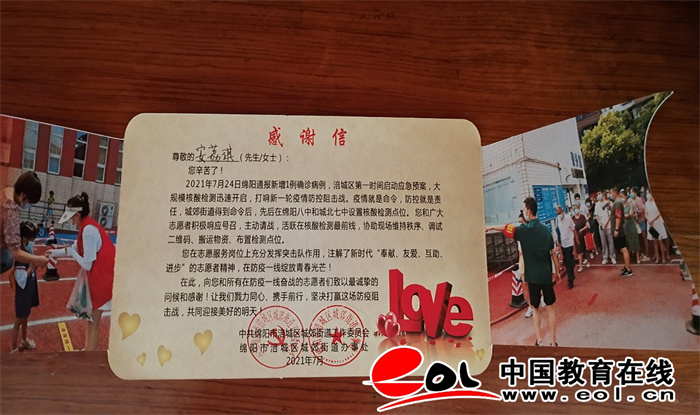 感谢信
尊敬的 安荔琪 (先生/女士)：
您辛苦了！
2021年7月24日绵阳通报新增1例确诊病例，涪城区第一时间启动应急预案，大
规模核酸检测迅速开启，打响新一轮疫情防控阻击战。疫情就是命令，防控就是责
任，城郊街道得到命令后，先后在绵阳八中和城北七中设置核酸检测点位。您和广大
志愿者积极响应号召，主动请战，活跃在核酸检测最前线，协助现场维持秩序、调试
二维码、搬运物资、布置检测点位。
您在志愿服务岗位上充分发挥突击队作用，注解了新时代“奉献、友爱、互助、
进步”的志愿者精神，在防疫一线绽放青春光芒！
在此，向您和所有在防疫一线奋战的志愿者们致以最诚挚的
问候和感谢！让我们戮力同心、携手前行，坚决打赢这场防疫阻
击战，共同迎接美好的明天！
love
中共绵阳市涪城区城郊街道工作委员会
绵阳市涪城区城郊街道办事处
2021年7月
eol 中国教育在线
www.eol.cn